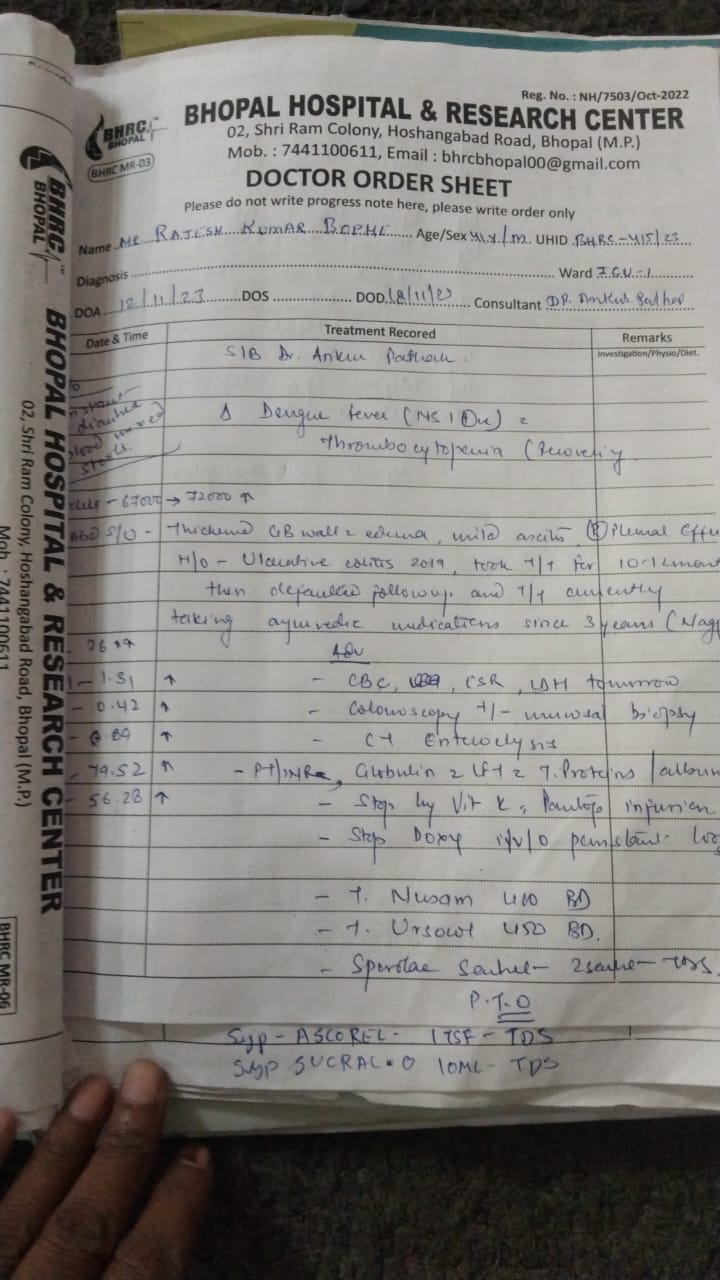 Reg. No. : NH/7503/Oct-2022
BHRC
BHOPAL
BHOPAL HOSPITAL & RESEARCH CENTER
02, Shri Ram Colony, Hoshangabad Road, Bhopal (M.P.)
Mob. : 7441100611, Email : bhrcbhopal00@gmail.com
BHRC MR-03
DOCTOR ORDER SHEET
Please do not write progress note here, please write order only
Name Mr RAJESH KUMAR Age/Sex /M UHID BHRC-415/23
Diagnosis Ward I.C.U-1
DOA 12/11/23 DOS DOD 18/11/23 Consultant DR.
Date & Time Treatment Recored Remarks
Investigation/Physio/Diet.
S/B Dr. Ankur
diarrhea
blood mixed
stools.
Δ Dengue fever (NS1 ⊕ve) c
Thrombocytopenia (Recovery
- 67000 → 72000 ↑
Abd S/O - Thickened GB wall c edema, mild ascitis, (R) Pleural Effu
H/O - Ulcerative colitis 2019, took T/t for 10-12 mont
then defaulted followup and T/t currently
taking ayurvedic medications since 3 years (Nag
Adv
- 1.31 ↑ - CBC, ESR, LDH tomorrow
- 0.42 ↑ - Colonoscopy +/- mucosal biopsy
- 0.89 ↑ - CT Enteroclysis
- 79.52 ↑ - PT/INR, Globulin c LFT c T. Proteins / album
- 56.28 ↑ - Stop Inj Vit K, Pantop infusion
- Stop Doxy i/v/o persistant
- T. Nusam 400 BD
- T. Ursocol 450 BD.
- Sporolac Sachet - 2 sachet - TDS.
P.T.O
Syp - ASCOREL - 1 TSF - TDS
Syp SUCRAL-O 10ML - TDS
BHRC
BHOPAL
BHOPAL HOSPITAL & RESEARCH CENTER
02, Shri Ram Colony, Hoshangabad Road, Bhopal (M.P.)
Mob. : 7441100611
BHRC MR-06